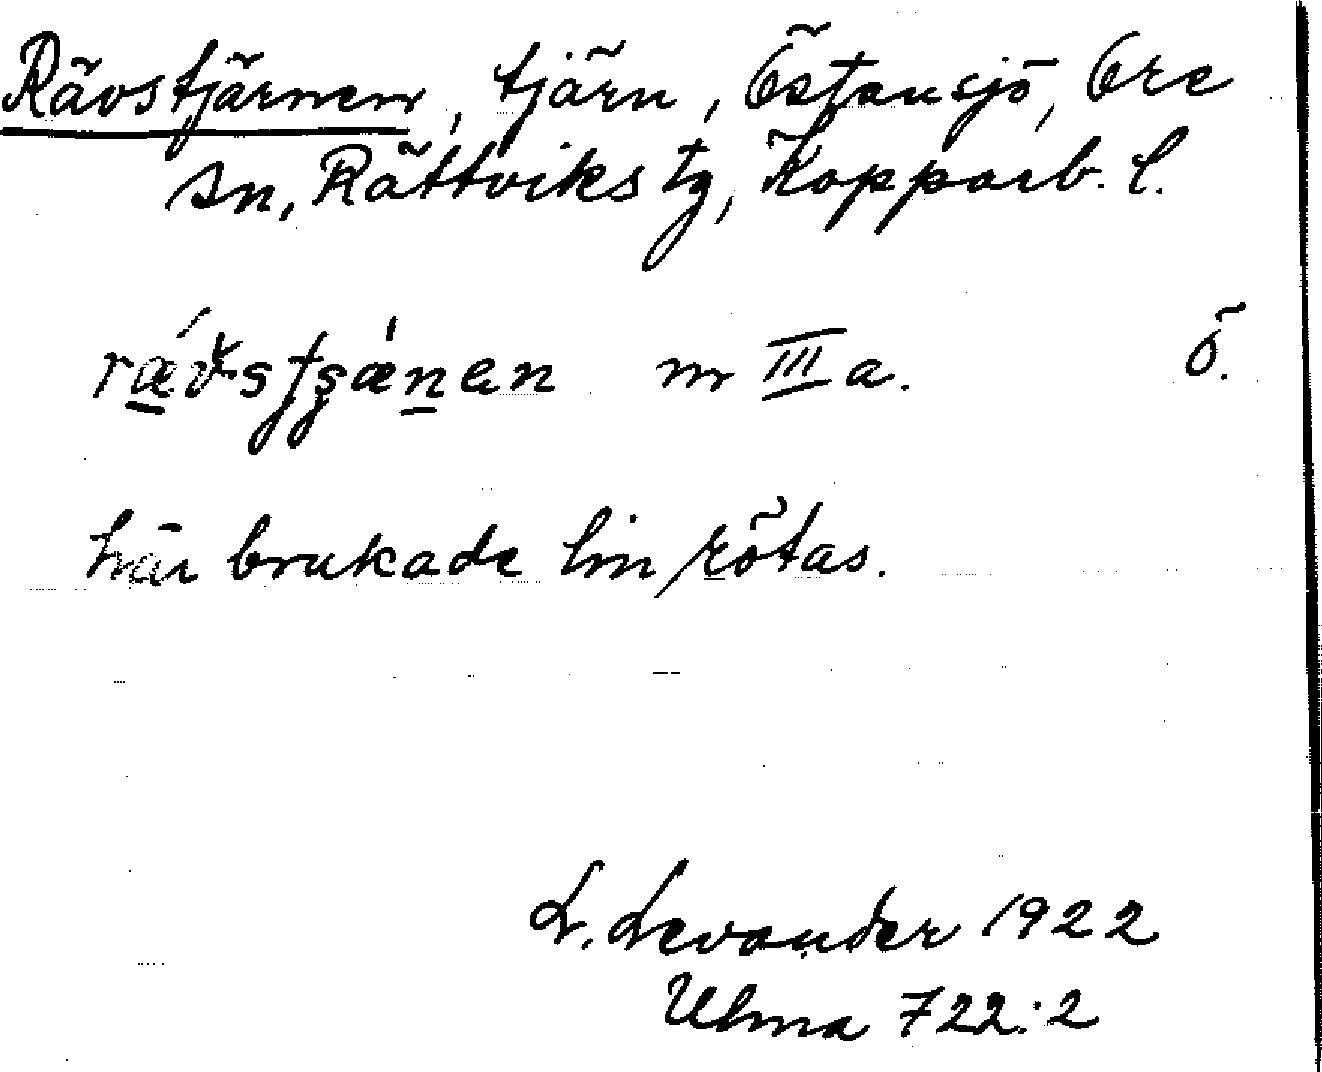 Rävstjärnen, tjärn, Östansjö, Ore
sn, Rättviks tg, Kopparb. l.
m III a. Ö.
här brukade lin rötas.
L. Levander 1922
Ulma 722:2